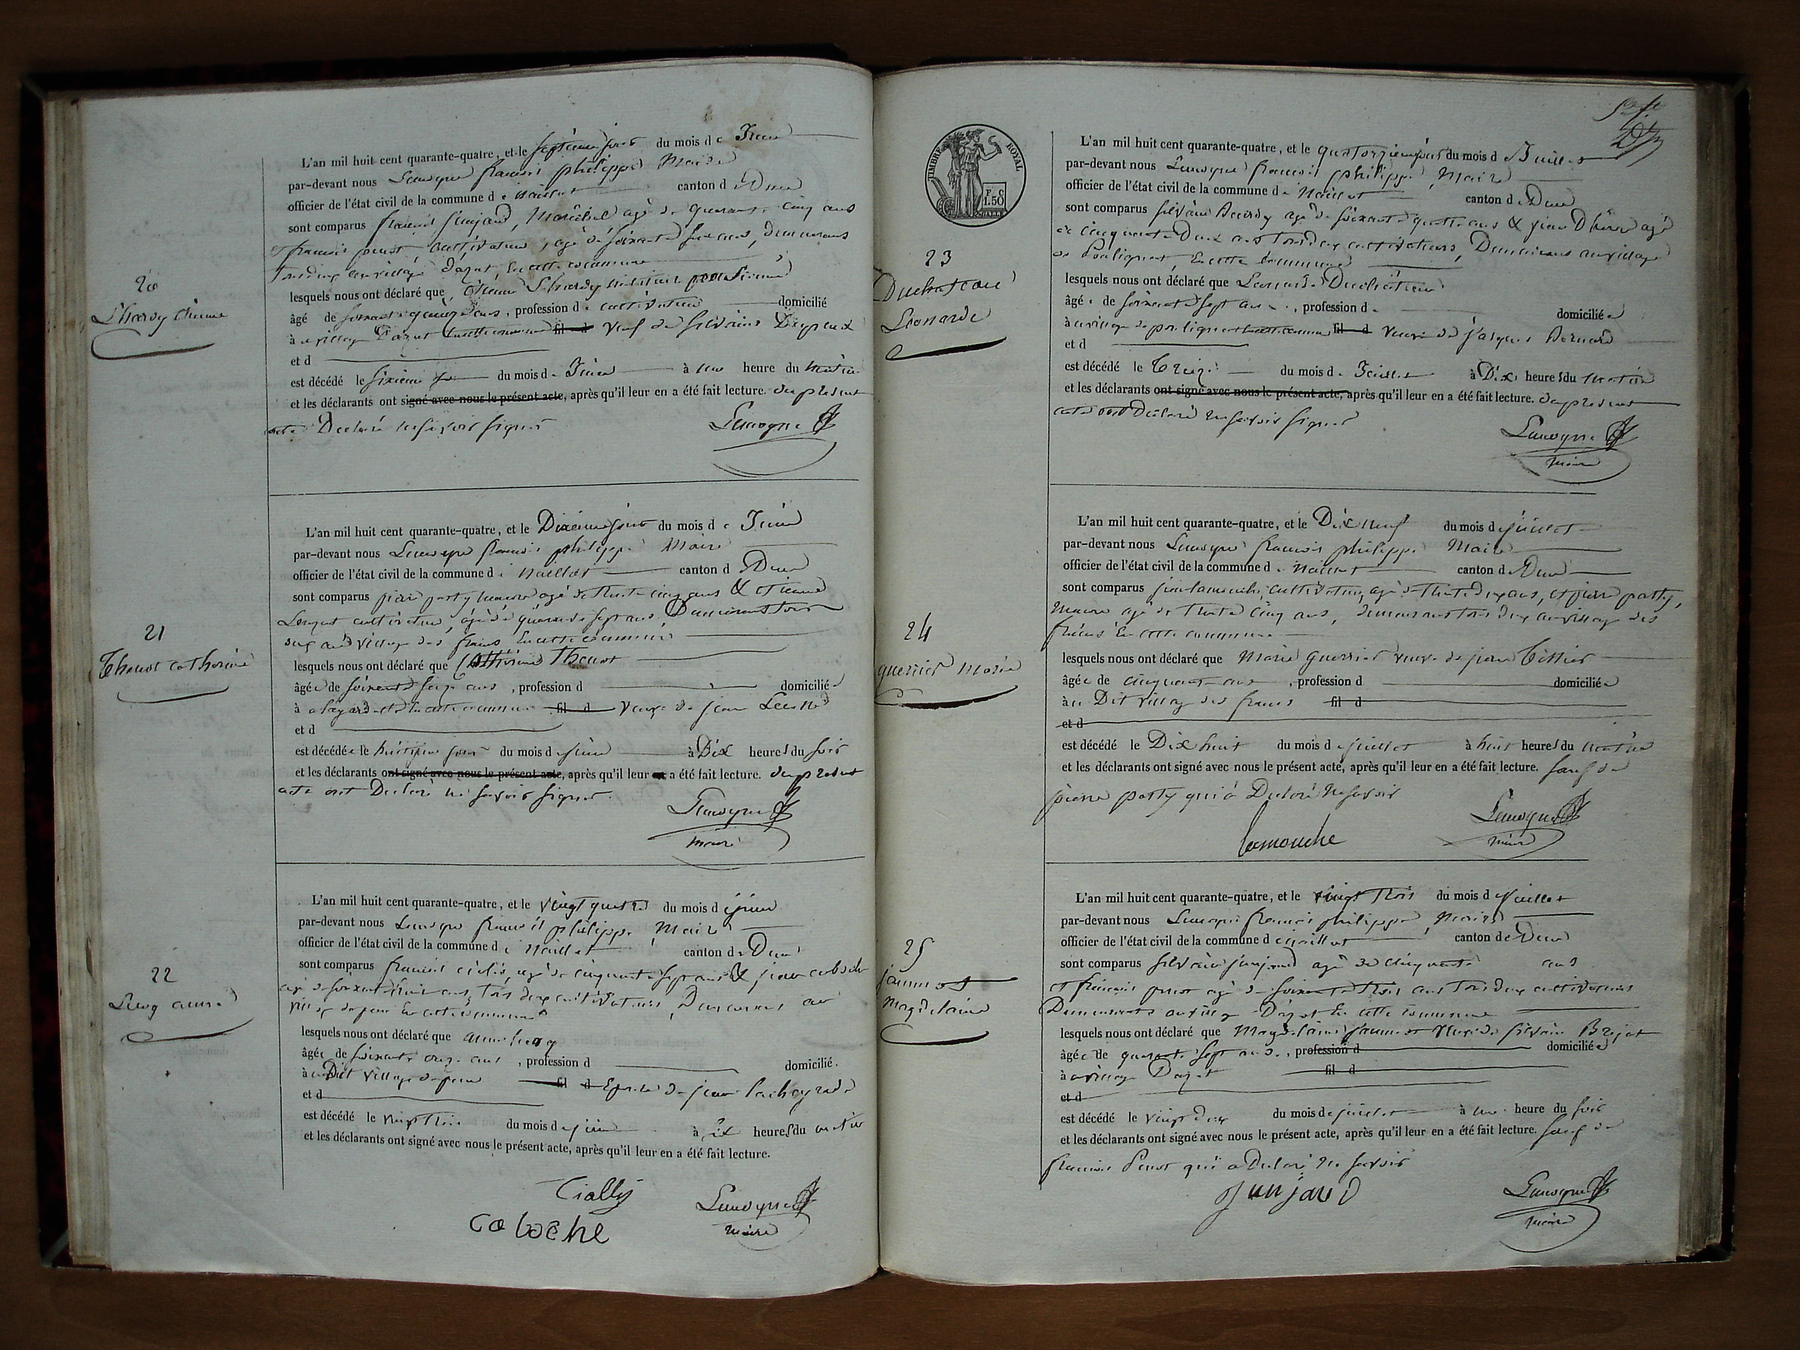 20
Lhardy Etienne
L'an mil huit cent quarante-quatre, et le septième jour du mois de Juin
par-devant nous Lemoyne françois philippe Maire
officier de l'état civil de la commune de naillat canton de Dun
sont comparus françois Junjaud, Maréchal agé de quarante cinq ans
et françois penot cultivateur, agé de soixante ans, demeurans
tous deux au village d'azat, en cette commune
lesquels nous ont déclaré que, Etienne Lhardy
âgé de soixante quinze ans, profession de cultivateur domicilié
à au village d'azat en cette commune fil d veuf de Silvaine
et d
est décédé le sixième jour du mois de Juin à une heure du matin
et les déclarants ont signé avec nous le présent acte, après qu'il leur en a été fait lecture. du présent
acte Déclaré ne savoir signer Lemoyne
21
Thenot catherine
L'an mil huit cent quarante-quatre, et le Dixième jour du mois de Juin
par-devant nous Lemoyne françois philippe Maire
officier de l'état civil de la commune de naillat canton de Dun
sont comparus pierre patty maçon agé de trente cinq ans & etienne
cultivateur, agé de quarante sept ans, Demeurans tous
deux au village des frans en cette commune
lesquels nous ont déclaré que Catherine Thenot
âgée de soixante seize ans, profession d domiciliée
à en cette commune fil d veuve de jean
et d
est décédée le huitième jour du mois de juin à Dix heures du soir
et les déclarants ont signé avec nous le présent acte, après qu'il leur en a été fait lecture. du présent
acte ont Déclaré ne savoir signer.
Lemoyne
maire
22
Lecoq anne
L'an mil huit cent quarante-quatre, et le vingt quatre du mois de juin
par-devant nous Lemoyne françois philippe, Maire
officier de l'état civil de la commune de Naillat canton de Dun
sont comparus françois agé de cinquante sept ans & jean
agé de soixante huit ans, tous deux cultivateurs, Demeurans au
village en cette commune
lesquels nous ont déclaré que anne
âgée de soixante onze ans, profession d domicilié
à au Dit village fil d Epouse de jean
et d
est décédé le vingt trois du mois de juin à dix heures du matin
et les déclarants ont signé avec nous le présent acte, après qu'il leur en a été fait lecture.
Cially
caloche
Lemoyne
maire
TIMBRE ROYAL
1.50
23
Duchateau
Leonarde
L'an mil huit cent quarante-quatre, et le quatorzième jour du mois de Juillet
par-devant nous Lemoyne françois philippe, Maire
officier de l'état civil de la commune de Naillat canton de Dun
sont comparus Silvain agé de soixante quatre ans & jean Dhéron agé
de cinquante Deux ans tous deux cultivateurs, Demeurans au village
de Polignat, en cette commune
lesquels nous ont déclaré que Leonarde Duchateau
âgée de soixante sept ans, profession d domiciliée
à au village de polignat en cette commune fil d veuve de jacques Bernard
et d
est décédé le Treize du mois de Juillet à Dix heures du matin
et les déclarants ont signé avec nous le présent acte, après qu'il leur en a été fait lecture. du présent
acte ont Déclaré ne savoir signer
Lemoyne
maire
24
guerrier Marie
L'an mil huit cent quarante-quatre, et le Dix neuf du mois de juillet
par-devant nous Lemoyne françois philippe Maire
officier de l'état civil de la commune de naillat canton de Dun
sont comparus jean lamouche cultivateur, agé de trente deux ans, et pierre patty,
maçon agé de trente cinq ans, demeurans tous deux au village des
frans en cette commune
lesquels nous ont déclaré que Marie guerrier veuve de jean Tissier
âgée de cinquante ans, profession d domiciliée
à au Dit village des frans fil d
et d
est décédé le Dix huit du mois de juillet à huit heures du matin
et les déclarants ont signé avec nous le présent acte, après qu'il leur en a été fait lecture. sauf de
pierre patty qui a Déclaré ne savoir
lamouche
Lemoyne
maire
25
jeannot
magdelaine
L'an mil huit cent quarante-quatre, et le vingt trois du mois de juillet
par-devant nous Lemoyne françois philippe, Maire
officier de l'état civil de la commune de naillat canton de Dun
sont comparus Silvain junjaud agé de cinquante ans
et françois penot agé de soixante trois ans tous deux cultivateurs
Demeurants au village D'azat en cette commune
lesquels nous ont déclaré que Magdelaine jeannot veuve de Silvain
âgée de quarante sept ans, profession d domiciliée
à au village D'azat fil d
et d
est décédé le vingt deux du mois de juillet à une heure du soir
et les déclarants ont signé avec nous le présent acte, après qu'il leur en a été fait lecture. sauf de
françois Penot qui a Déclaré ne savoir
Junjaud
Lemoyne
maire